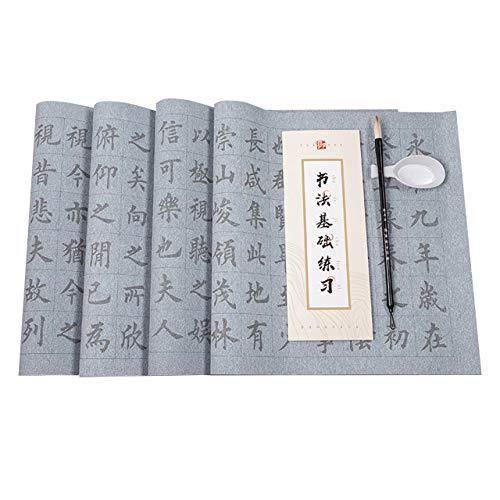 永
九年歲在
初
长咸集此地有
崇山峻領茂林
以極視聽之娛
信可樂也夫人
之矣向之所欣
俯仰之閒已為
視今亦猶今之
視昔悲夫故列
书法基础练习